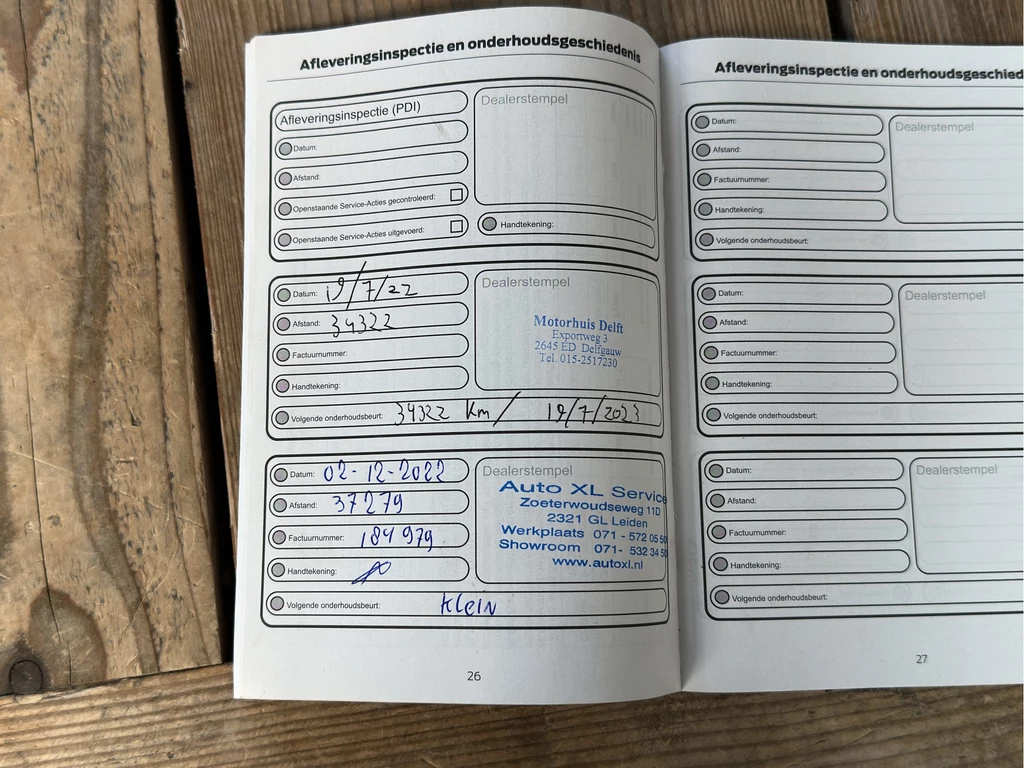 Afleveringsinspectie en onderhoudsgeschiedenis
Afleveringsinspectie (PDI)
Datum:
Afstand:
Openstaande Service-Acties gecontroleerd:
Openstaande Service-Acties uitgevoerd:
Dealerstempel
Handtekening:
Datum: 19/7/22
Afstand: 34322
Factuurnummer:
Handtekening:
Dealerstempel
Motorhuis Delft
Exportweg 3
2645 ED Delfgauw
Tel. 015-2517230
Volgende onderhoudsbeurt: 34322 km/ 19/7/2023
Datum: 02-12-2022
Afstand: 37279
Factuurnummer: 184979
Handtekening:
Dealerstempel
Auto XL Service
Zoeterwoudseweg 11D
2321 GL Leiden
Werkplaats 071 - 572 05 50
Showroom 071- 532 34 50
www.autoxl.nl
Volgende onderhoudsbeurt: Klein
26
Afleveringsinspectie en onderhoudsgeschied
Datum:
Afstand:
Factuurnummer:
Handtekening:
Dealerstempel
Volgende onderhoudsbeurt:
Datum:
Afstand:
Factuurnummer:
Handtekening:
Dealerstempel
Volgende onderhoudsbeurt:
Datum:
Afstand:
Factuurnummer:
Handtekening:
Dealerstempel
Volgende onderhoudsbeurt:
27